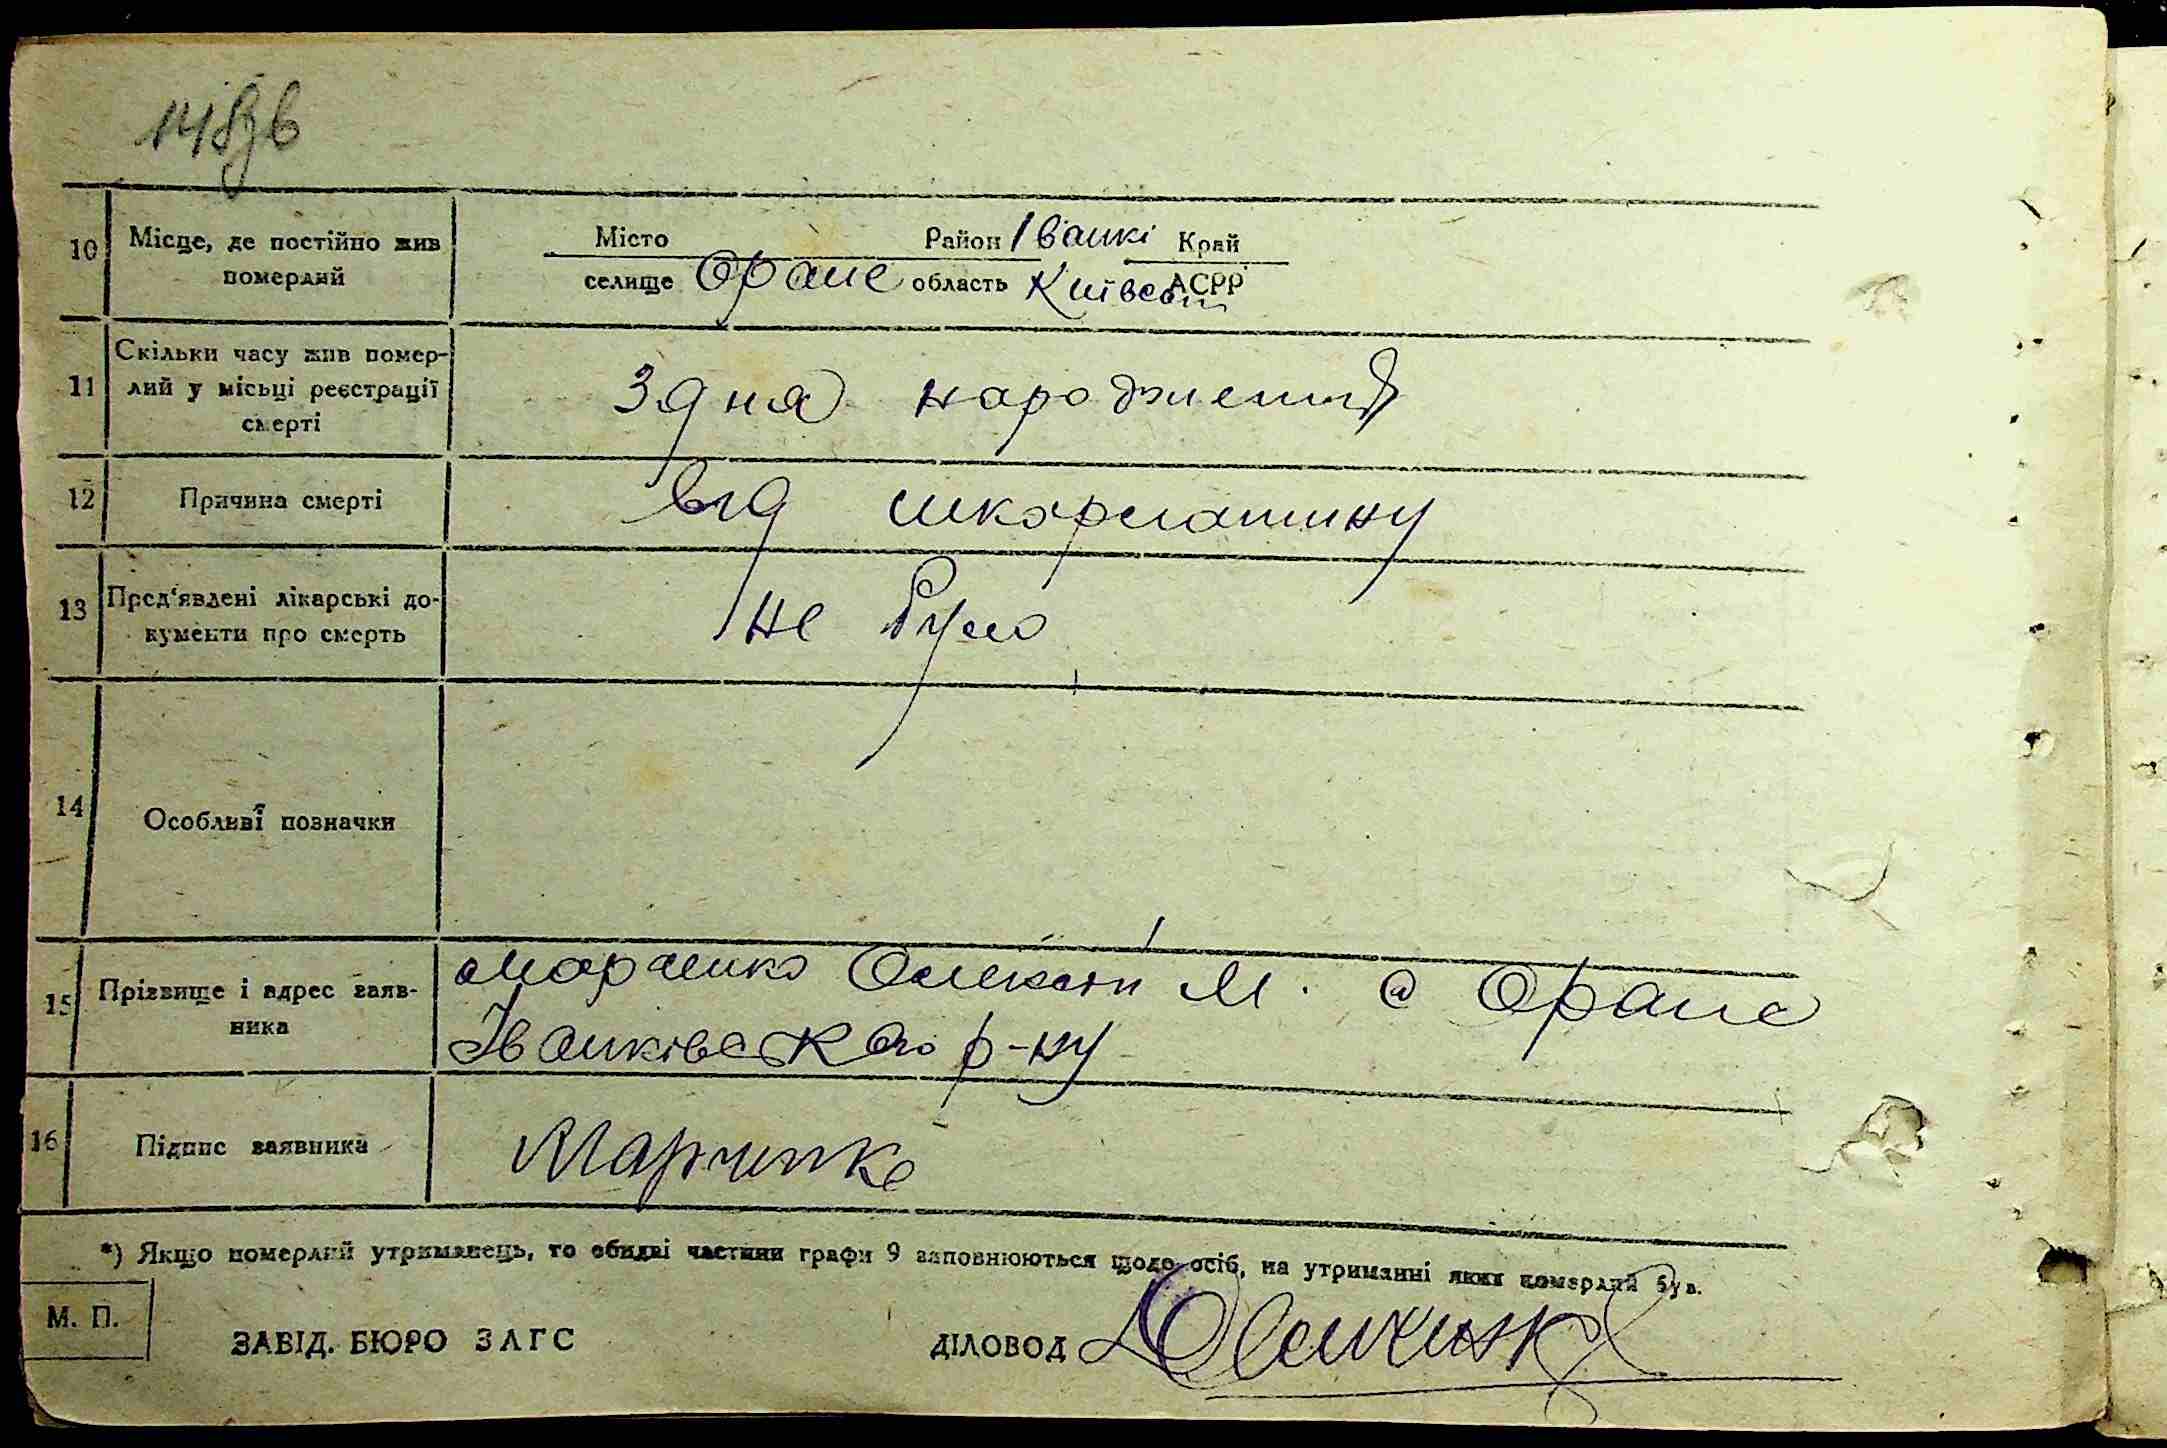 148зв
10 Місце, де постійно жив Місто Район Іванкі Край
померлий селище Оране область Київськ АСРР
Скільки часу жив помер-
11 лий у місьці реєстрації З дня народження
смерті
12 Причина смерті від шкарлатину
13 Пред'явлені лікарські до- не було
кументи про смерть
14 Особливі позначки
15 Прізвище і адрес заяв- Марченко Олексан М. с Оране
ника Іванківського р-ну
16 Підпис заявника Марченко
*) Якщо померлий утриманець, то обидві частини графи 9 заповнюються щодо осіб, на утриманні яких померлий був.
М. П.
ЗАВІД. БЮРО ЗАГС ДІЛОВОД